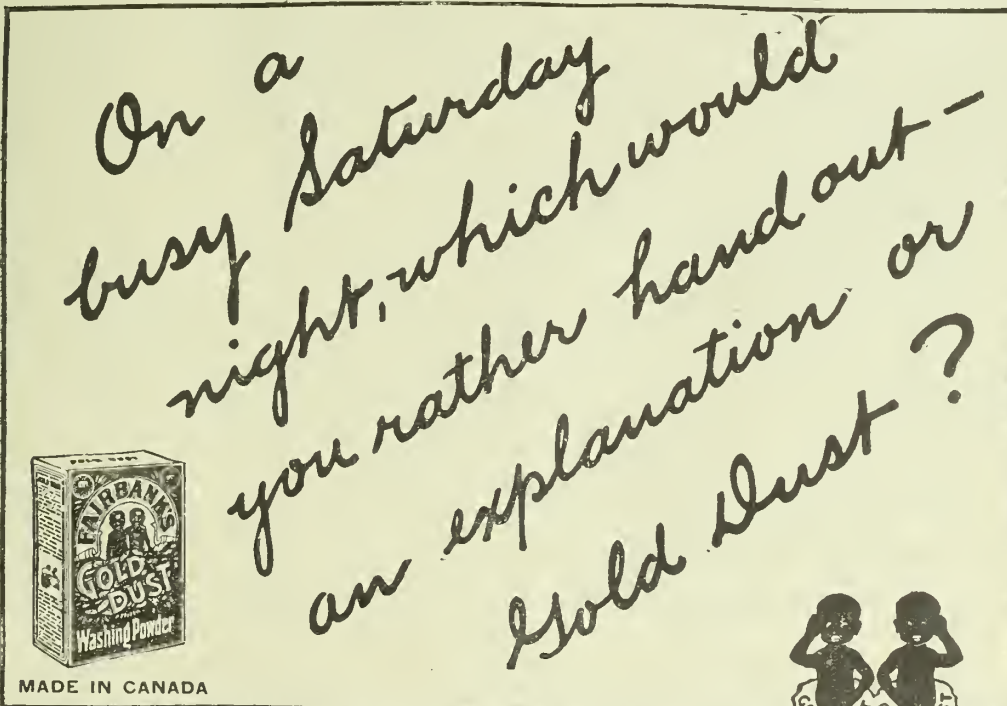 On a
busy Saturday
night, which would
you rather hand out —
an explanation or
Gold Dust?
FAIRBANK'S
GOLD
DUST
Washing Powder
MADE IN CANADA